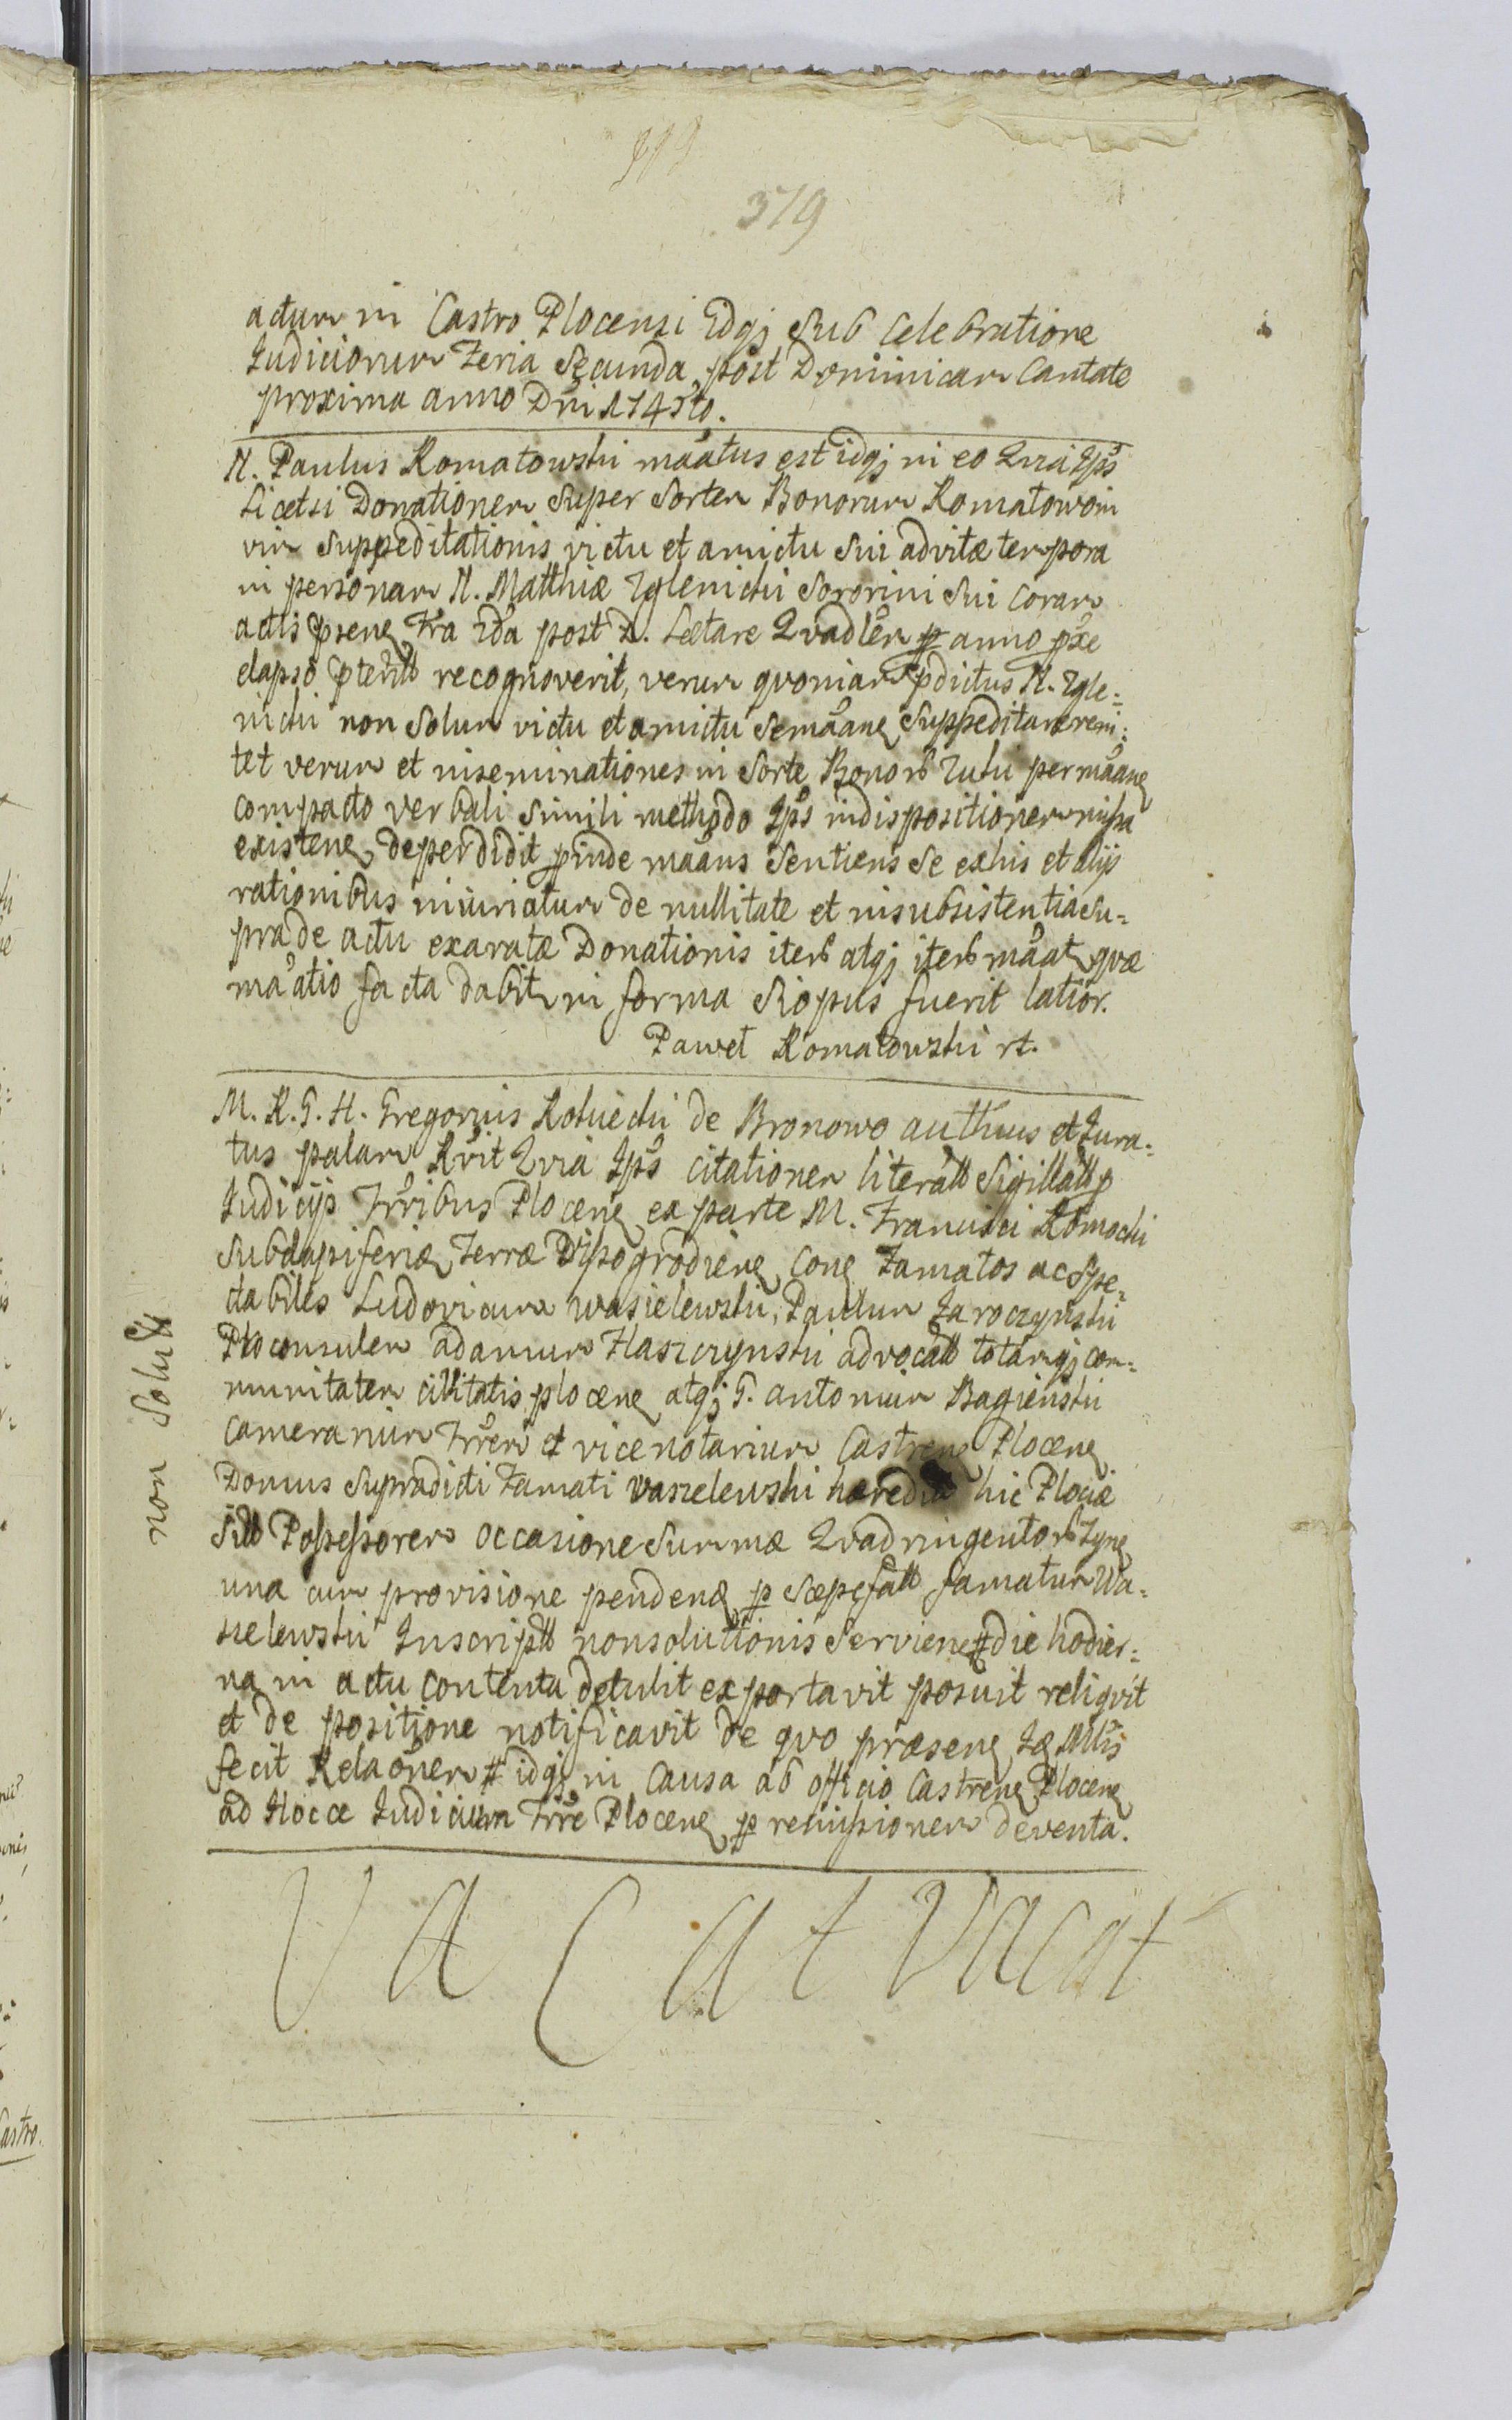 319
actum in Castro Plocensi Idqj Sub Celebratione
Iudiciorum Feria Secunda post Dominicam Cantate
proxima anno Dni 1745to.
N. Paulus Romatowski maatus est idqj in eo Quia Ips
Licetsi Donationem Super Sortem Bonorum Romatowo in
vim Suppeditationis victu et amictu Sui ad vitæ tempora
in personam N. Matthiæ Zglenicki Sororini Sui Coram
actis psene Fra 2da post D. Lætare Qvadlem anno pxe
elapso recognoverit, verum qvoniam pdictus N. Zgle=
nicki non Solum victu et amictu Semaane Suppeditare reni=
tet verum et inseminationes in Sorte Bonor Zuki per maane
compacto verbali Simili methodo Ips indispositionem
existene deperdidit pinde maans Sentiens Se ex his et alijs
rationibus iniuriatum de nullitate et insubsistentia Su=
pra de actu exaratæ Donationis iter atqj iter maat qvæ
maatio facta dabit in forma Si opus fuerit latior.
Paweł Romatowski rt.
M. R. G. H. Gregorius Kotuecki de Bronowo authus et Jura=
tus palam Rvit Qvia Ips citationem literatt Sigillatt p
Iudicijs Trribus Plocene ex parte M. Francisci Romocki
Subdapiferiæ Terræ Wyszogrodiene Cone Famatos ac Spe=
ctabiles Ludovicum Wasielewski, Paulum Jaroczynski
Proconsulem adamum Flaszczynski advocatt totamqj com=
munitatem civitatis plocene atqj G. antonium Bagienski
Camerarium Trrem et vicenotarium Castrene Plocene
Domus Supradicti Famati Waszelewski hæredit hic Plociæ
Sitt Possessorem Occasione Summæ Qvadringentor Tyne
una cum provisione pendene p Sæpefatt famatum Wa=
sielewski Inscriptt non solutionis Serviene # die hodier=
na in actu contenta detulit exportavit posuit reliqvit
et de positione notificavit de qvo præsene Ja Mtis
fecit Relaonem # idqj in Causa ab officio Castrene Plocene
ad Hocce Iudicium Trre Plocene p remissionem deventa.
non Solutt
Vacat Vacat